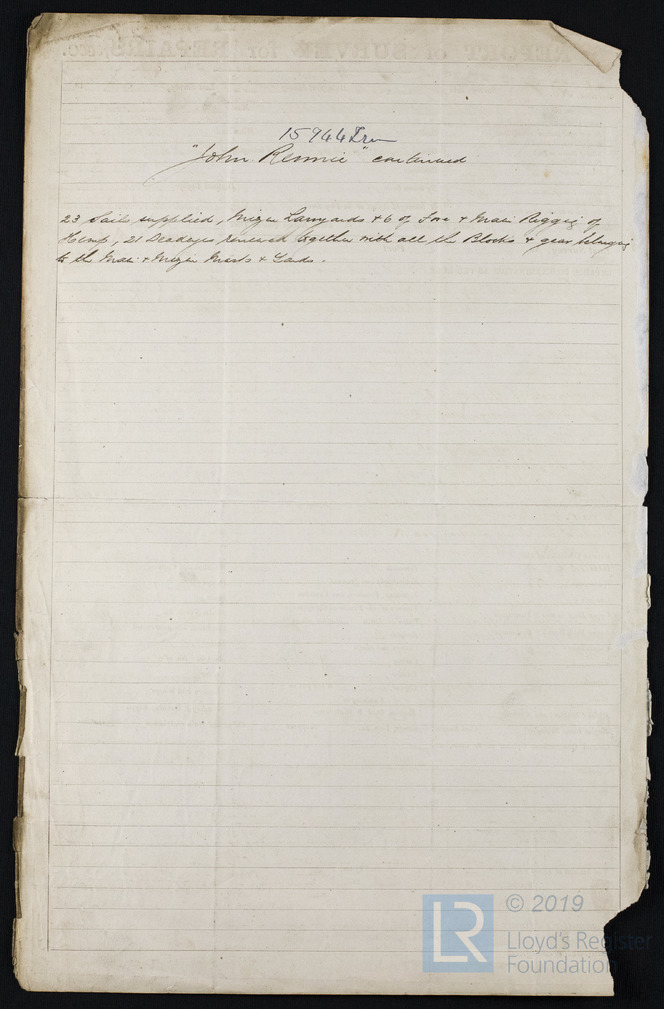 REPORT of SURVEY for REPAIRS, &c.
15944 Iron
"John Rennie" continued
23 Sails supplied, Mizen Lanyards & 6 of Fore & Main Rigging of
Hemp, 21 Deadeyes renewed together with all the Blocks & gear belonging
to the Main & Mizen Masts & Yards.
© 2019
LR
Lloyd's Register
Foundation